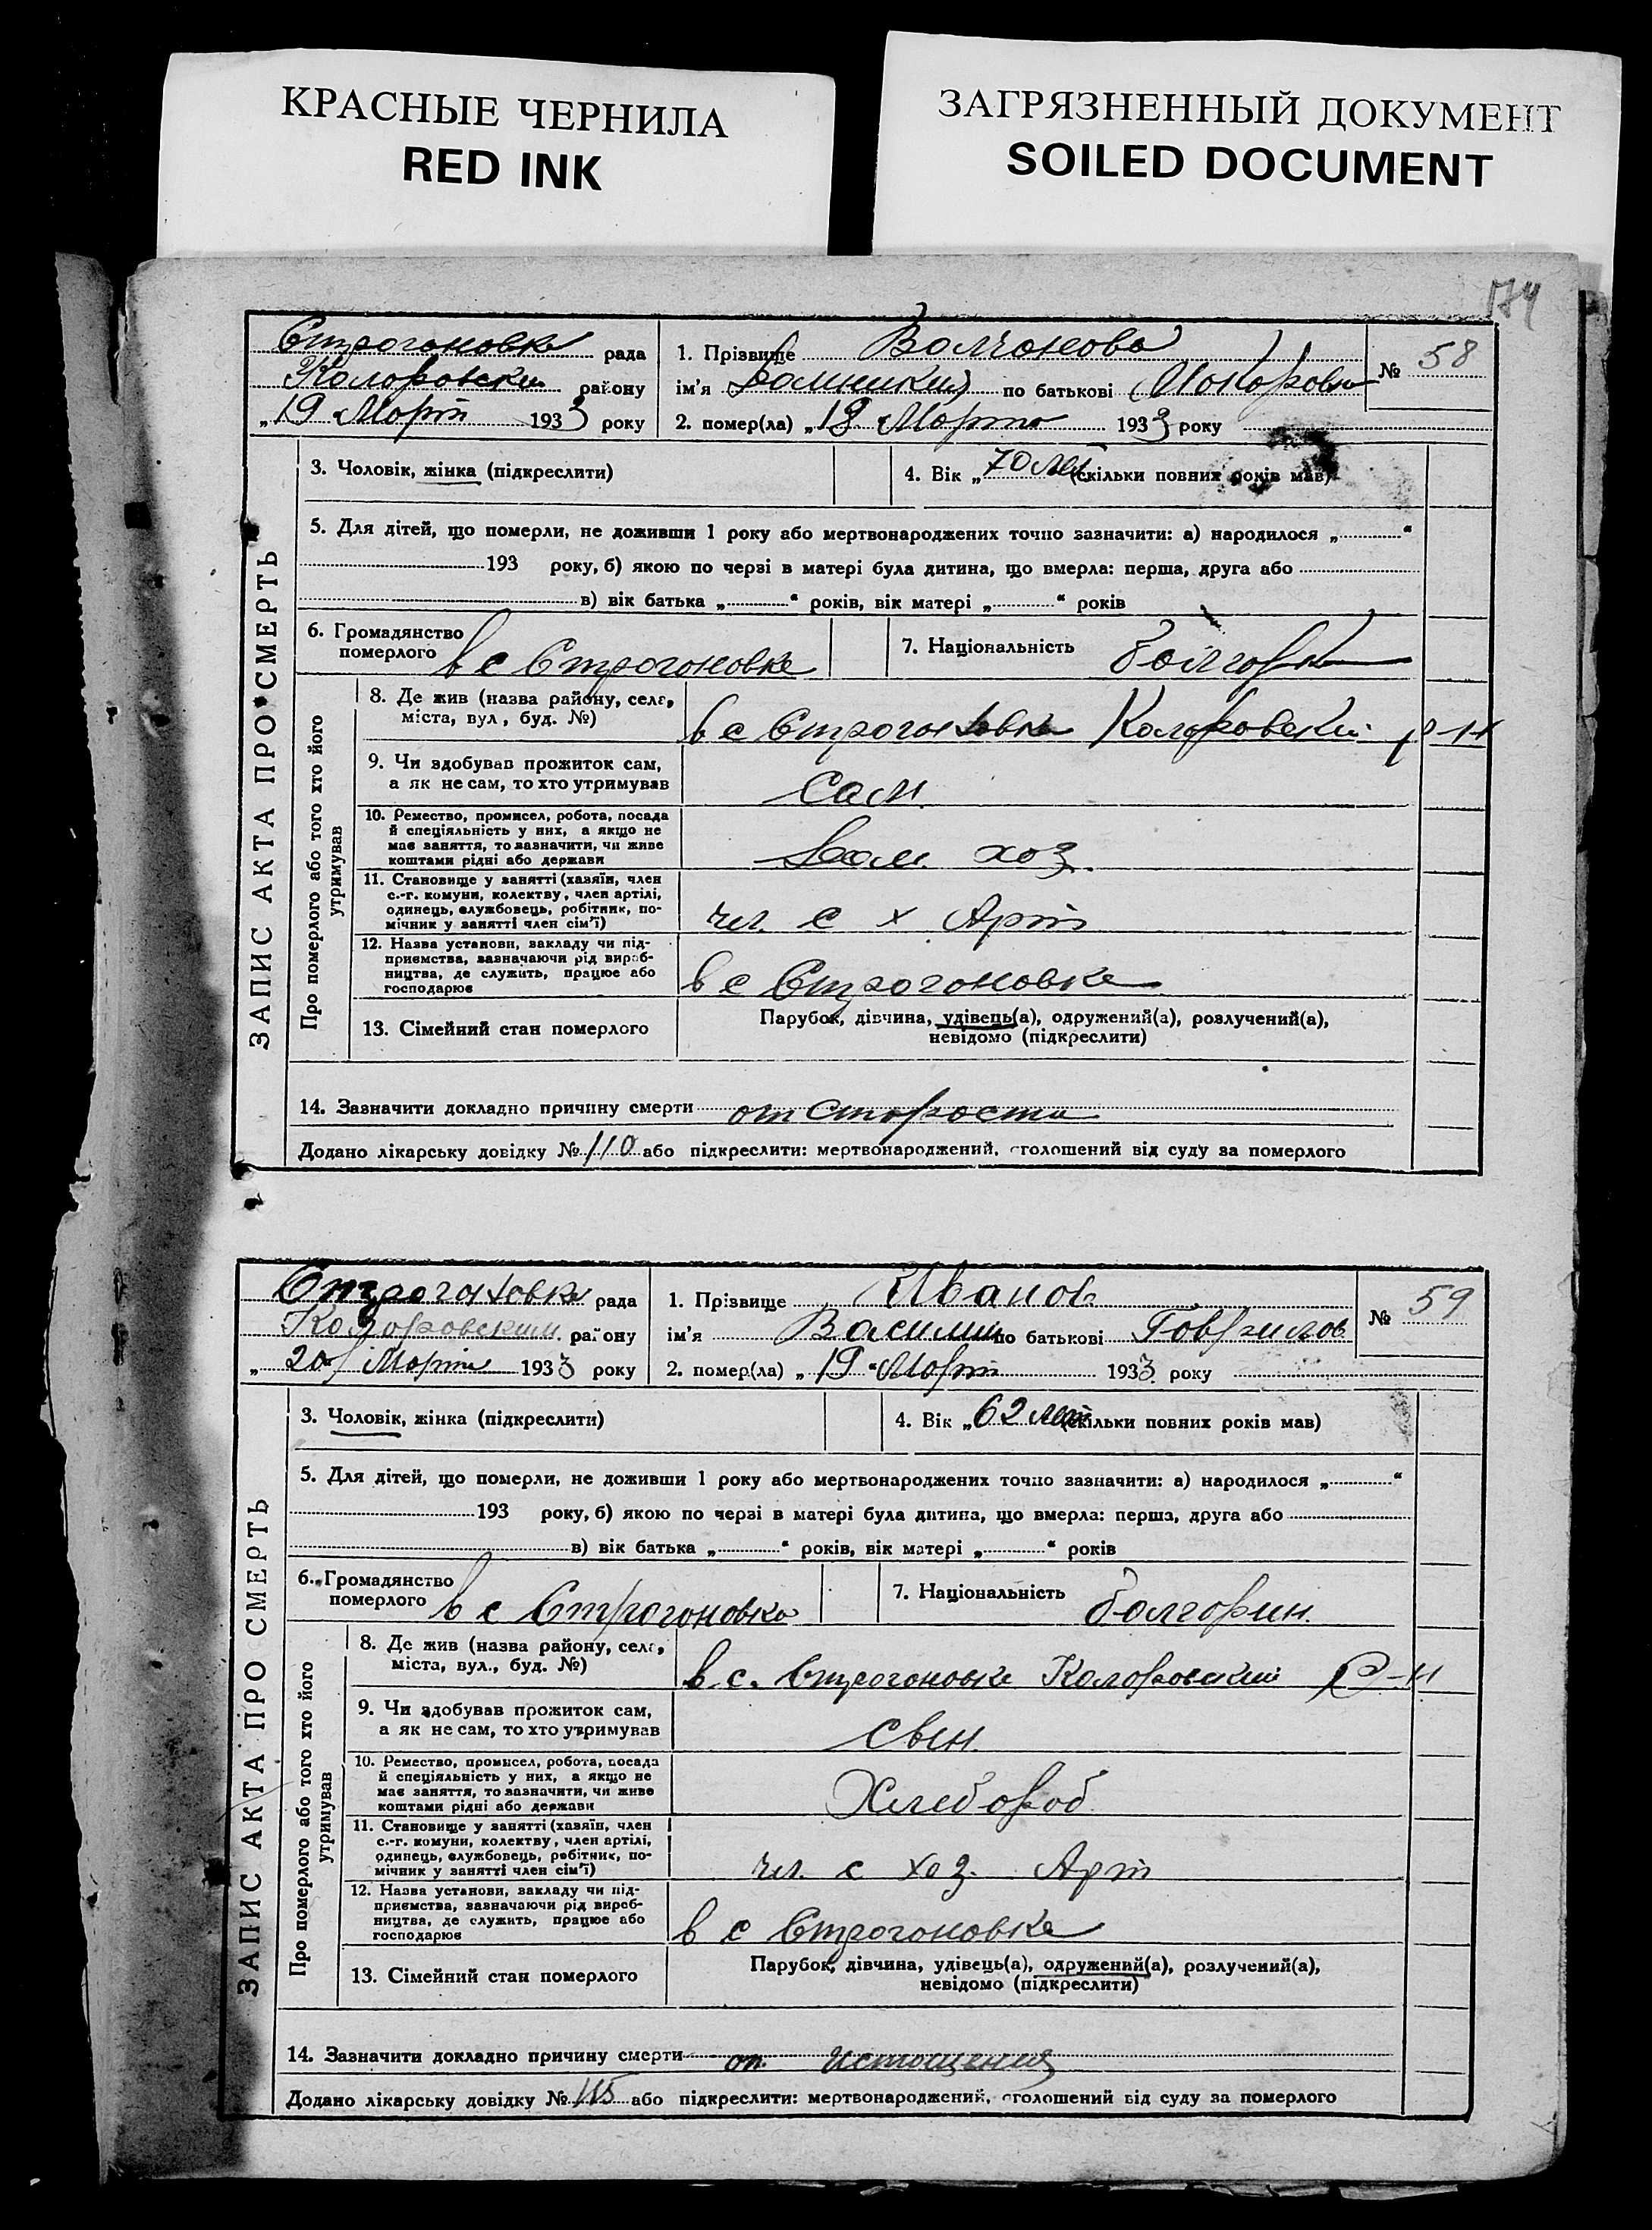 КРАСНЫЕ ЧЕРНИЛА
RED INK
ЗАГРЯЗНЕННЫЙ ДОКУМЕНТ
SOILED DOCUMENT
174
Строгоновка рада
Коларовски району
„19 Март 1933 року
1. Прізвище Волчонова
ім'я по батькові
2. помер(ла) „18 Марта 1933 року
№ 58
3. Чоловік, жінка (підкреслити)
4. Вік „70 лет (скільки повних років мав)
5. Для дітей, що померли, не доживши 1 року або мертвонароджених точно зазначити: а) народилося „ “
193 року, б) якою по черзі в матері була дитина, що вмерла: перша, друга або
в) вік батька „ “ років, вік матері „ “ років
6. Громадянство померлого в с Строгоновка
7. Національність болгорк
ЗАПИС АКТА ПРО СМЕРТЬ
Про померлого або того хто його утримував
8. Де жив (назва району, села, міста, вул, буд. №) в с Строгоновка Коларовский р-н
9. Чи здобував прожиток сам, а як не сам, то хто утримував сам.
10. Ремество, промисел, робота, посада й спеціяльність у них, а якщо не має заняття, то зазначити, чи живе коштами рідні або держави Дом. хоз.
11. Становище у занятті (хазяїн, член с.-г. комуни, колектву, член артілі, одинець, службовець, робітник, помічник у занятті член сім'ї) чл. с х Арт
12. Назва установи, закладу чи підприємства, зазначаючи рід виробництва, де служить, працює або господарює в с Строгоновка
13. Сімейний стан померлого Парубок, дівчина, удівець(а), одружений(а), розлучений(а),
невідомо (підкреслити)
14. Зазначити докладно причину смерти от Старости
Додано лікарську довідку № 110 або підкреслити: мертвонароджений, оголошений від суду за померлого
Строгоновка рада
Коларовским району
„20 Март 1933 року
1. Прізвище Иванов
ім'я Василий по батькові Говрилов
2. помер(ла) „19 Март 1933 року
№ 59
3. Чоловік, жінка (підкреслити)
4. Вік „62 лет (скільки повних років мав)
5. Для дітей, що померли, не доживши 1 року або мертвонароджених точно зазначити: а) народилося „ “
193 року, б) якою по черзі в матері була дитина, що вмерла: перша, друга або
в) вік батька „ “ років, вік матері „ “ років
6. Громадянство померлого в с Строгоновка
7. Національність болгорин.
ЗАПИС АКТА ПРО СМЕРТЬ
Про померлого або того хто його утримував
8. Де жив (назва району, села, міста, вул., буд. №) в с. Строгоновке Коларовский р-н
9. Чи здобував прожиток сам, а як не сам, то хто утримував
10. Ремество, промисел, робота, посада й спеціяльність у них, а якщо не має заняття, то зазначити, чи живе коштами рідні або держави Хлебороб
11. Становище у занятті (хазяїн, член с.-г. комуни, колектву, член артілі, одинець, службовець, робітник, помічник у занятті член сім'ї) чл. с хоз. Арт
12. Назва установи, закладу чи підприємства, зазначаючи рід виробництва, де служить, працює або господарює в с Строгоновке
13. Сімейний стан померлого Парубок, дівчина, удівець(а), одружений(а), розлучений(а),
невідомо (підкреслити)
14. Зазначити докладно причину смерти от истощения
Додано лікарську довідку № 115 або підкреслити: мертвонароджений, оголошений від суду за померлого